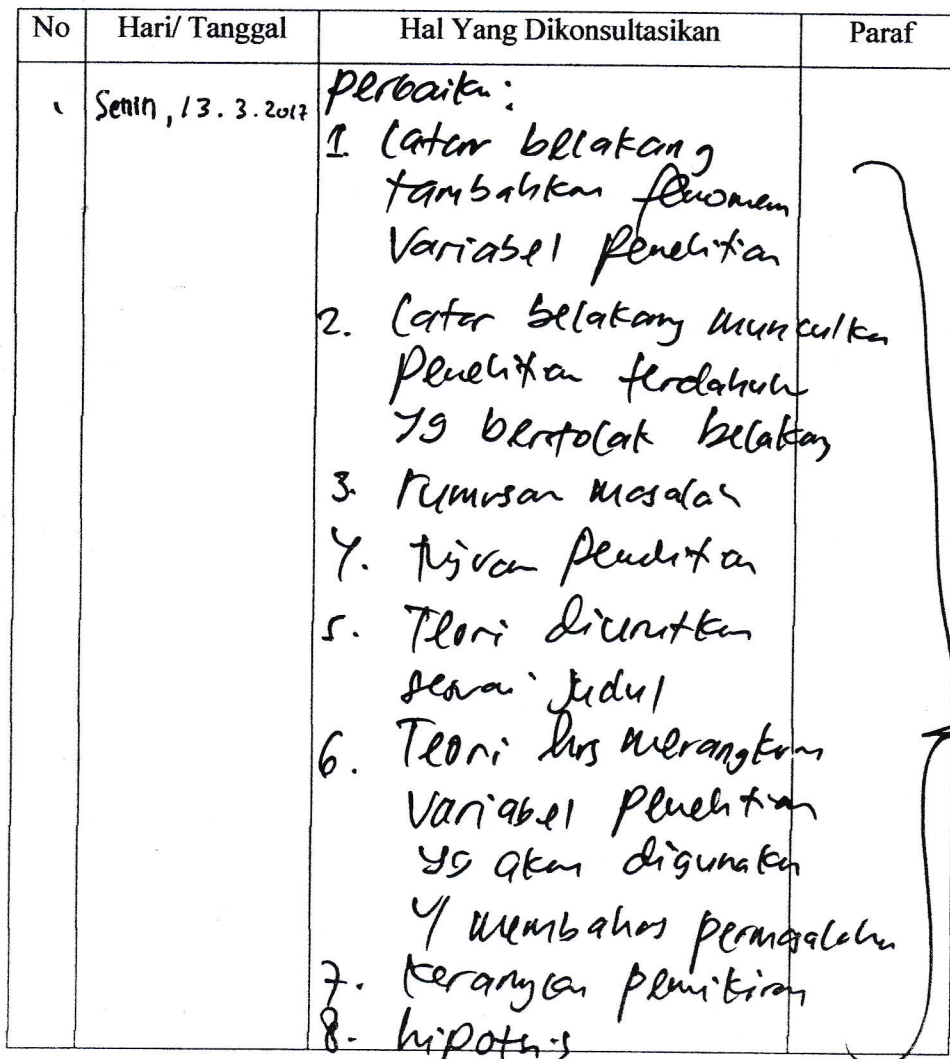 No Hari/ Tanggal Hal Yang Dikonsultasikan Paraf
Senin, 13.3.2017 perbaikan:
1. Latar belakang
tambahkan fenomena
Variabel penelitian
2. Latar belakang munculkan
penelitian terdahulu
yg bertolak belakang
3. rumusan masalah
4. tujuan penelitian
5. Teori diurutkan
sesuai judul
6. Teori hrs merangkum
Variabel penelitian
yg akan digunakan
u/ membahas permasalahan
7. kerangka pemikiran
8. hipotesis